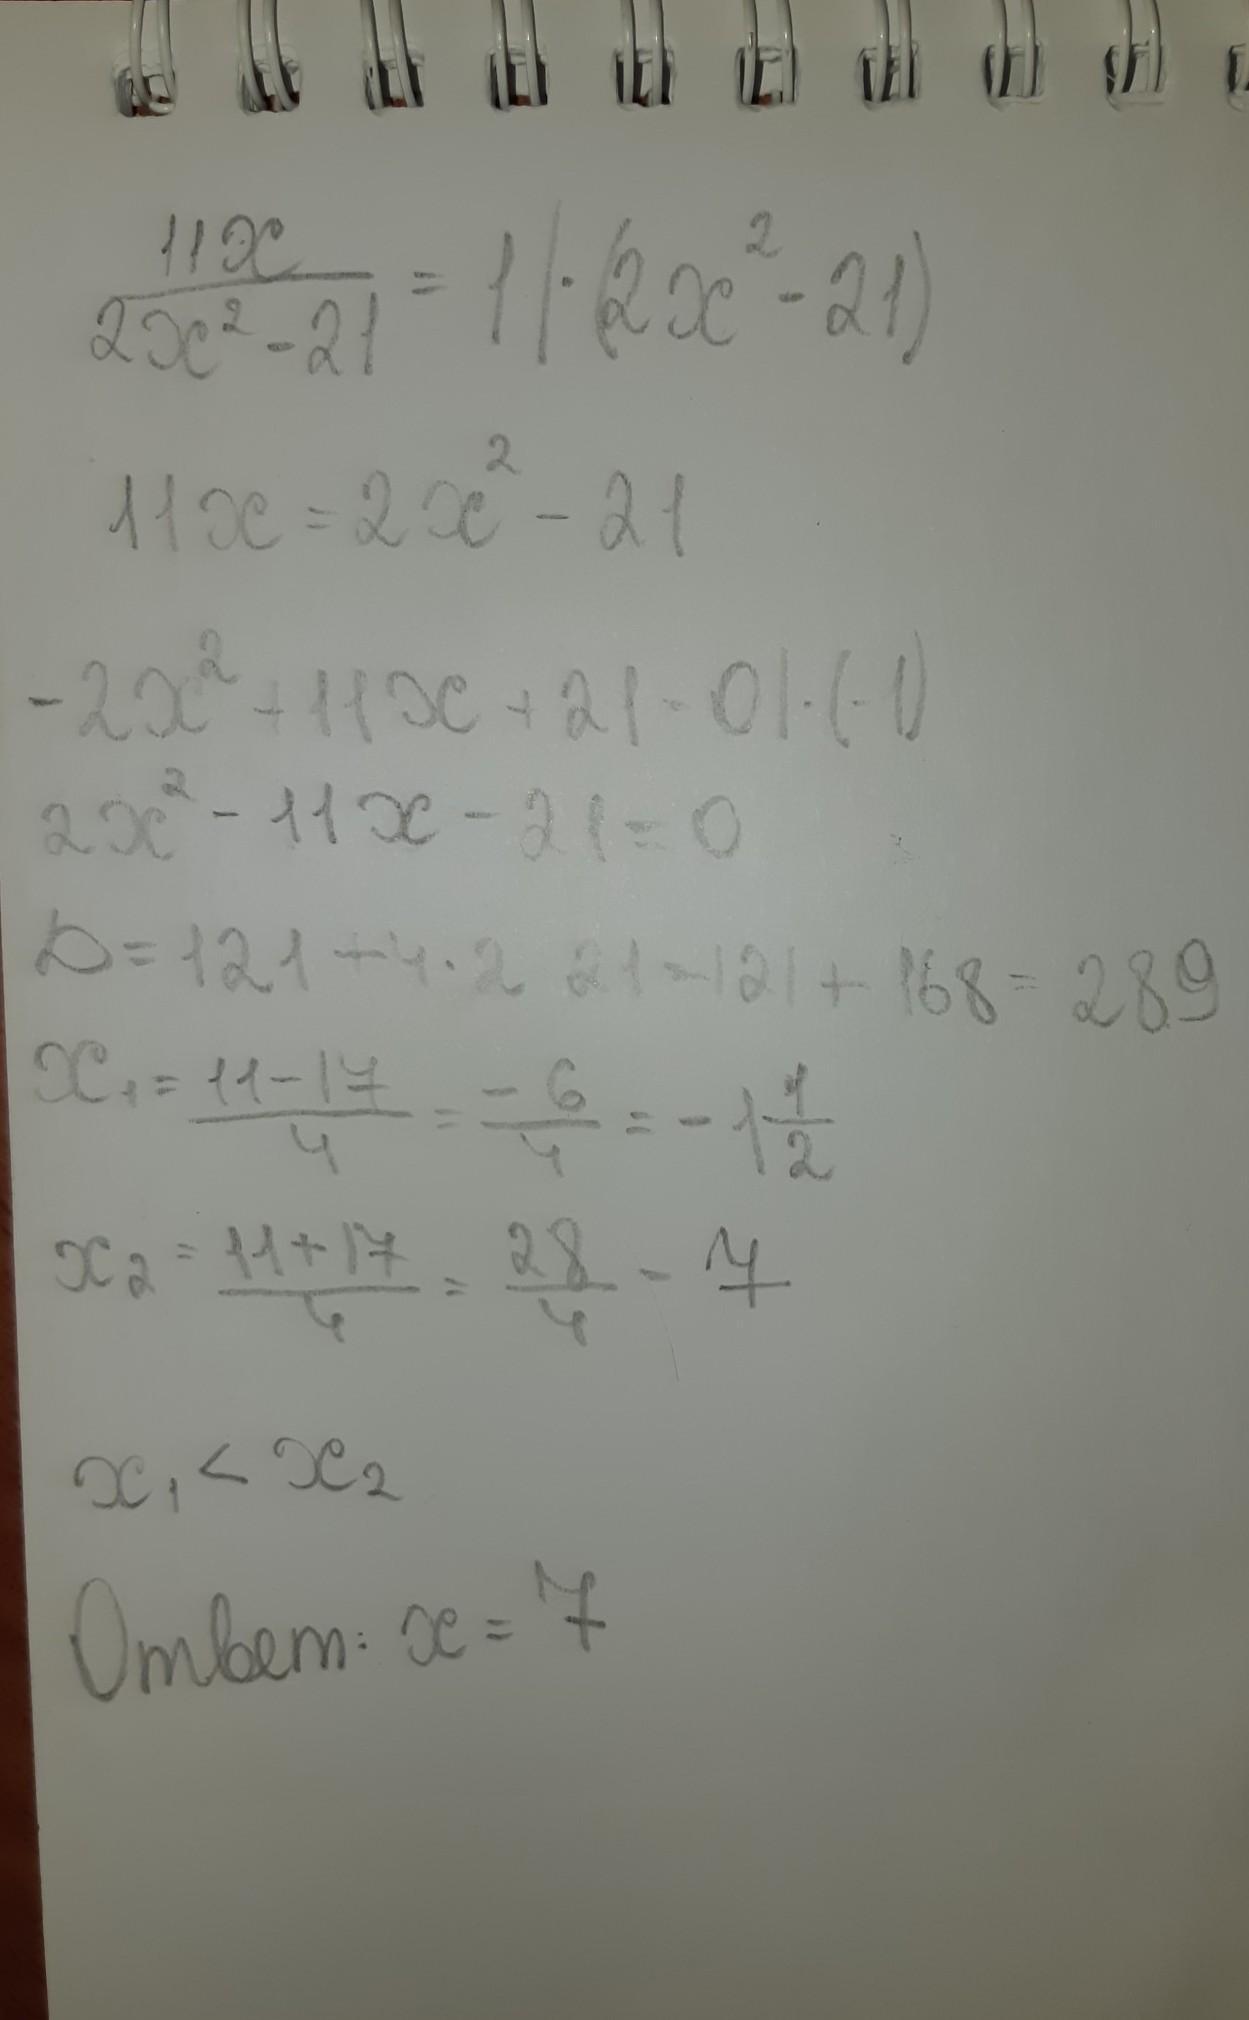 11x/(2x² - 21) = 1 | · (2x² - 21)
11x = 2x² - 21
-2x² + 11x + 21 = 0 | · (-1)
2x² - 11x - 21 = 0
D = 121 + 4 · 2 21 = 121 + 168 = 289
x₁ = (11 - 17)/4 = -6/4 = -1 1/2
x₂ = (11 + 17)/4 = 28/4 = 7
x₁ < x₂
Ответ: x = 7